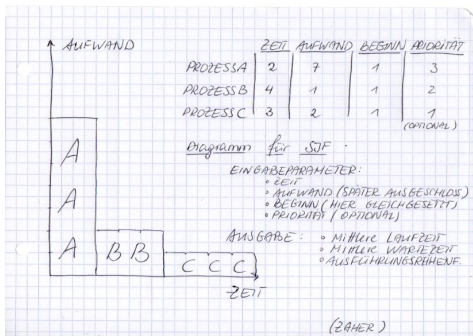 AUFWAND
ZEIT AUFWAND BEGINN PRIORITÄT
PROZESS A 2 7 1 3
PROZESS B 4 1 1 2
PROZESS C 3 2 1 1
(OPTIONAL)
Diagramm für SJF.
EINGABEPARAMETER:
• ZEIT
• AUFWAND (SPÄTER AUSGESCHLOSS)
• BEGINN (HIER GLEICHGESETZT)
• PRIORITÄT (OPTIONAL)
AUSGABE: • Mittlere LAUFZEIT
• Mittlere WARTEZEIT
• AUSFÜHRUNGSREIHENF.
A
A
A B B
C C C
ZEIT
(ZAHER)